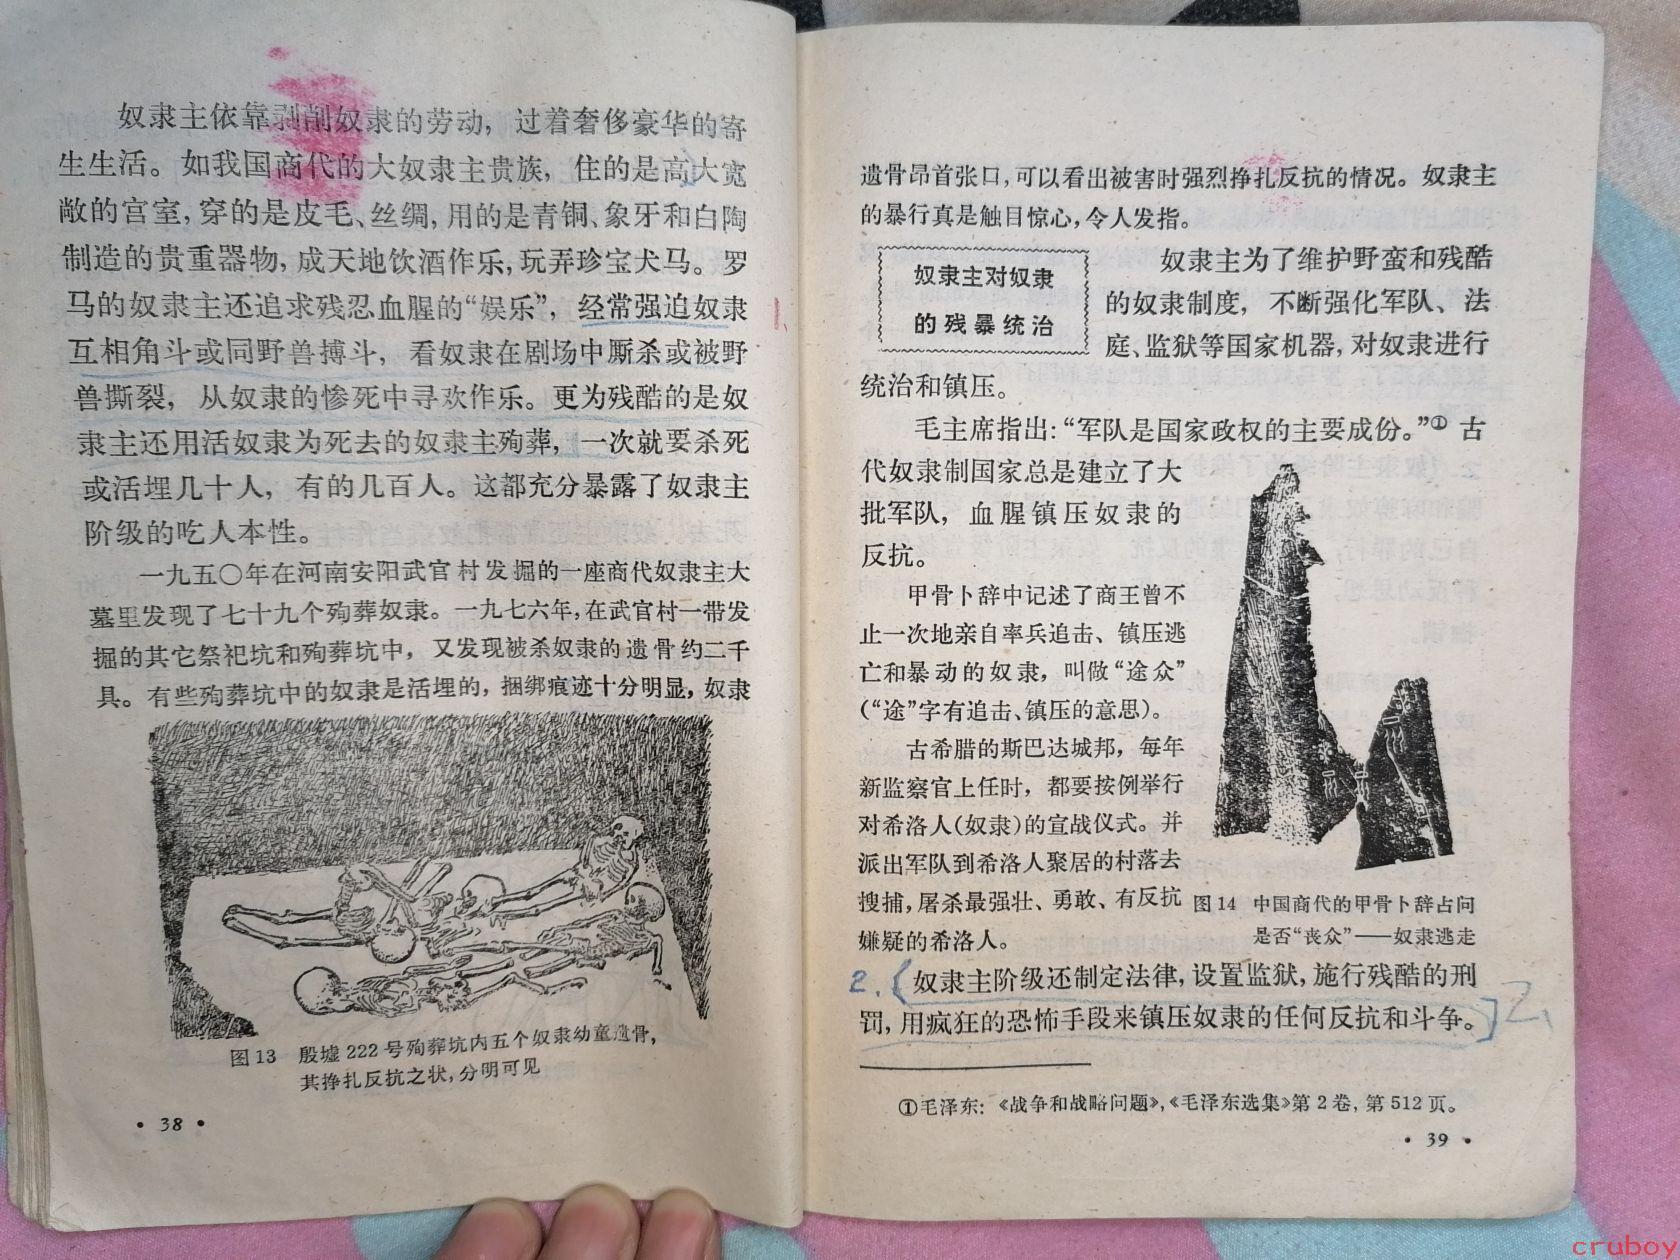 奴隶主依靠剥削奴隶的劳动，过着奢侈豪华的寄
生生活。如我国商代的大奴隶主贵族，住的是高大宽
敞的宫室，穿的是皮毛、丝绸，用的是青铜、象牙和白陶
制造的贵重器物，成天地饮酒作乐，玩弄珍宝犬马。罗
马的奴隶主还追求残忍血腥的“娱乐”，经常强迫奴隶
互相角斗或同野兽搏斗，看奴隶在剧场中厮杀或被野
兽撕裂，从奴隶的惨死中寻欢作乐。更为残酷的是奴
隶主还用活奴隶为死去的奴隶主殉葬，一次就要杀死
或活埋几十人，有的几百人。这都充分暴露了奴隶主
阶级的吃人本性。
一九五〇年在河南安阳武官村发掘的一座商代奴隶主大
墓里发现了七十九个殉葬奴隶。一九七六年，在武官村一带发
掘的其它祭祀坑和殉葬坑中，又发现被杀奴隶的遗骨约二千
具。有些殉葬坑中的奴隶是活埋的，捆绑痕迹十分明显，奴隶
图13 殷墟222号殉葬坑内五个奴隶幼童遗骨，
其挣扎反抗之状，分明可见
• 38 •
遗骨昂首张口，可以看出被害时强烈挣扎反抗的情况。奴隶主
的暴行真是触目惊心，令人发指。
奴隶主对奴隶
的残暴统治
奴隶主为了维护野蛮和残酷
的奴隶制度，不断强化军队、法
庭、监狱等国家机器，对奴隶进行
统治和镇压。
毛主席指出：“军队是国家政权的主要成份。”① 古
代奴隶制国家总是建立了大
批军队，血腥镇压奴隶的
反抗。
甲骨卜辞中记述了商王曾不
止一次地亲自率兵追击、镇压逃
亡和暴动的奴隶，叫做“途众”
（“途”字有追击、镇压的意思）。
古希腊的斯巴达城邦，每年
新监察官上任时，都要按例举行
对希洛人（奴隶）的宣战仪式。并
派出军队到希洛人聚居的村落去
搜捕，屠杀最强壮、勇敢、有反抗
嫌疑的希洛人。
图14 中国商代的甲骨卜辞占问
是否“丧众”——奴隶逃走
2. （奴隶主阶级还制定法律，设置监狱，施行残酷的刑
罚，用疯狂的恐怖手段来镇压奴隶的任何反抗和斗争。] 2.
①毛泽东：《战争和战略问题》，《毛泽东选集》第2卷，第512页。
• 39 •
cruboy